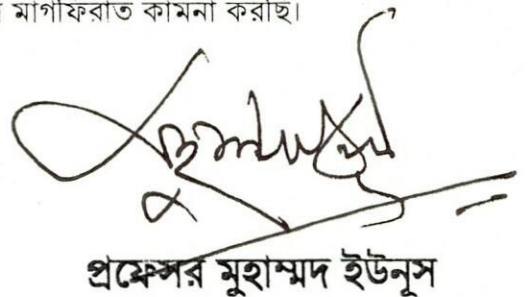 মাগফিরাত কামনা করছি।
প্রফেসর মুহাম্মদ ইউনূস